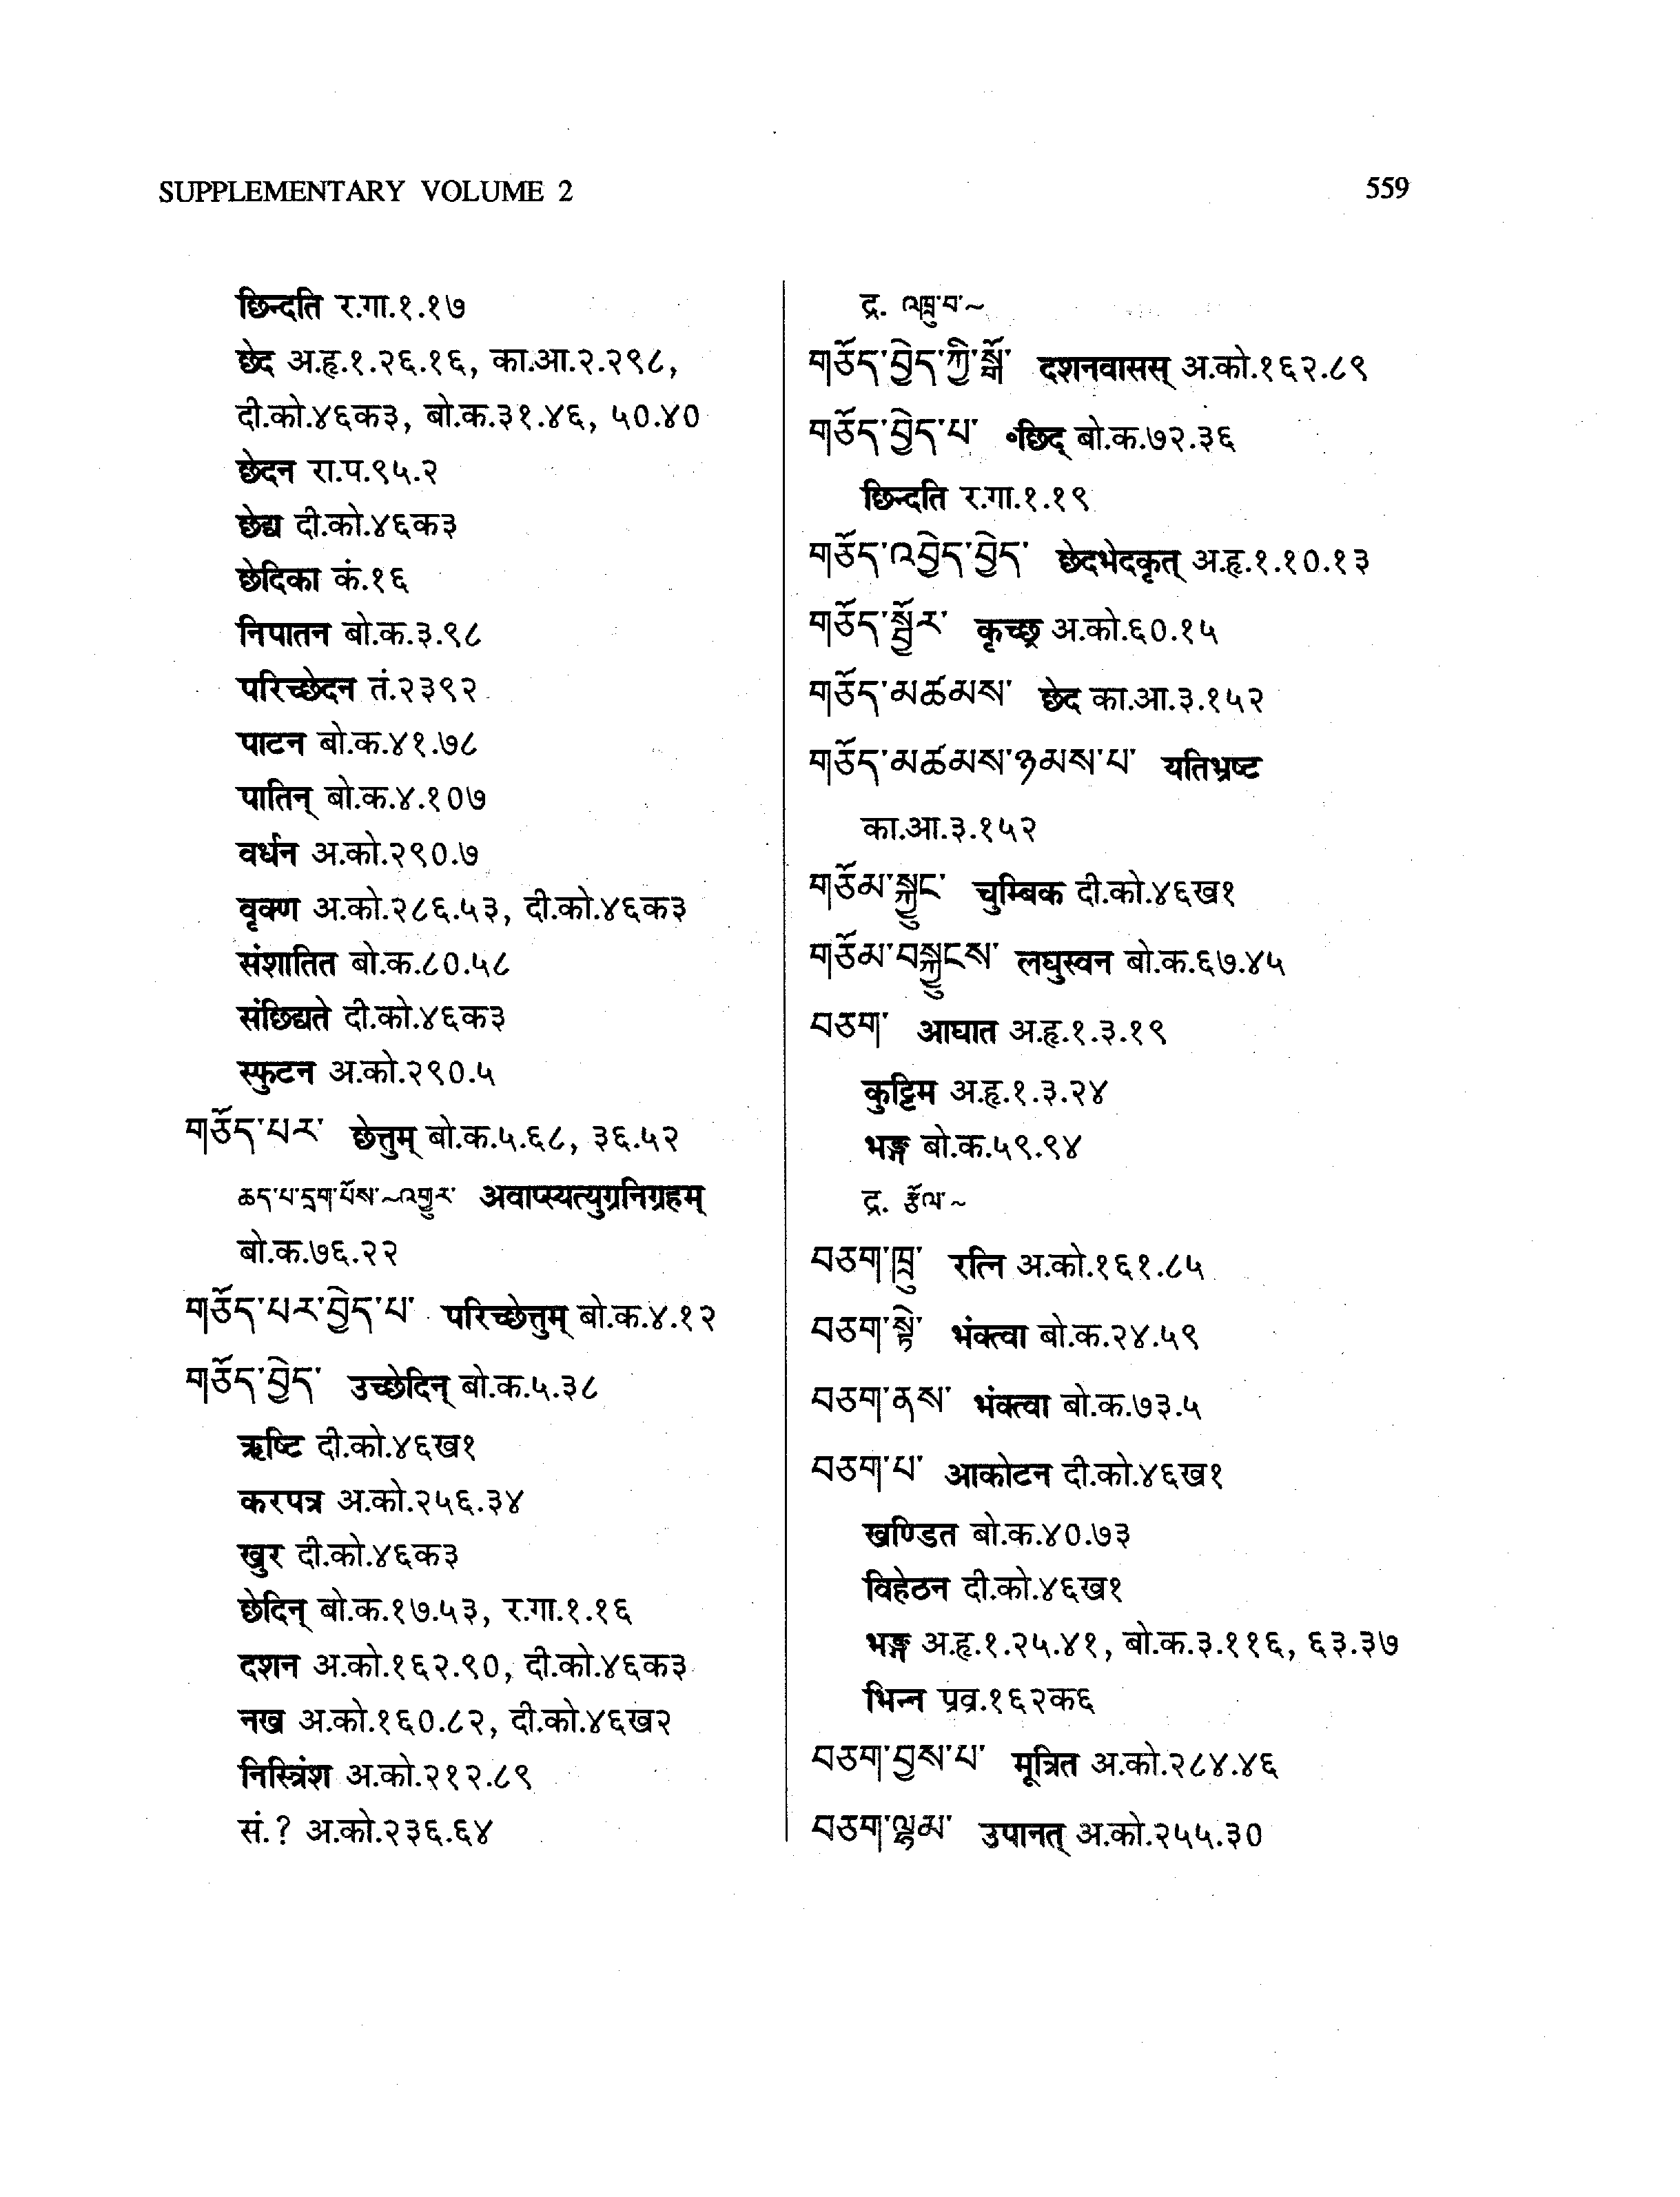 SUPPLEMENTARY VOLUME 2
559
छिन्दति र.गा.१.१७
छेद अ.हृ.१.२६.१६, का.आ.२.२९८,
दी.को.४६क३, बो.क.३१.४६, ५०.४०
छेदन रा.प.९५.२
छेद्य दी.को.४६क३
छेदिका कं.१६
निपातन बो.क.३.९८
परिच्छेदन तं.२३९२
पाटन बो.क.४१.७८
पातिन् बो.क.४.१०७
वर्धन अ.को.२९०.७
वृक्ण अ.को.२८६.५३, दी.को.४६क३
संशातित बो.क.८०.५८
संछिद्यते दी.को.४६क३
स्फुटन अ.को.२९०.५
གཅོད་པར་ छेत्तुम् बो.क.५.६८, ३६.५२
ཆད་པ་དྲག་པོས་~འགྱུར་ अवाप्स्यत्युग्रनिग्रहम्
बो.क.७६.२२
གཅོད་པར་བྱེད་པ་ परिच्छेत्तुम् बो.क.४.१२
གཅོད་བྱེད་ उच्छेदिन् बो.क.५.३८
ऋष्टि दी.को.४६ख१
करपत्र अ.को.२५६.३४
खुर दी.को.४६क३
छेदिन् बो.क.१७.५३, र.गा.१.१६
दशन अ.को.१६२.९०, दी.को.४६क३
नख अ.को.१६०.८२, दी.को.४६ख२
निस्त्रिंश अ.को.२१२.८९
सं.? अ.को.२३६.६४
द्र. འཁྲུ་བ་~
གཅོད་བྱེད་ཀྱི་སྒོ་ दशनवासस् अ.को.१६२.८९
གཅོད་བྱེད་པ་ ॰छिद् बो.क.७२.३६
छिन्दति र.गा.१.१९
གཅོད་འབྱེད་བྱེད་ छेदभेदकृत् अ.हृ.१.१०.१३
གཅོད་སྦྱོར་ कृच्छ्र अ.को.६०.१५
གཅོད་མཚམས་ छेद का.आ.३.१५२
གཅོད་མཚམས་ཉམས་པ་ यतिभ्रष्ट
का.आ.३.१५२
གཅོམ་སྐྱུང་ चुम्बिक दी.को.४६ख१
གཅོམ་བསྐྱུངས་ लघुस्वन बो.क.६७.४५
བཅག་ आघात अ.हृ.१.३.१९
कुट्टिम अ.हृ.१.३.२४
भङ्ग बो.क.५९.९४
द्र. རྩོལ་~
བཅག་ཁྲུ་ रत्नि अ.को.१६१.८५
བཅག་སྟེ་ भंक्त्वा बो.क.२४.५९
བཅག་ནས་ भंक्त्वा बो.क.७३.५
བཅག་པ་ आकोटन दी.को.४६ख१
खण्डित बो.क.४०.७३
विहेठन दी.को.४६ख१
भङ्ग अ.हृ.१.२५.४१, बो.क.३.११६, ६३.३७
भिन्न प्रव्र.१६२क६
བཅག་བྱས་པ་ मूत्रित अ.को.२८४.४६
བཅག་ལྷམ་ उपानत् अ.को.२५५.३०